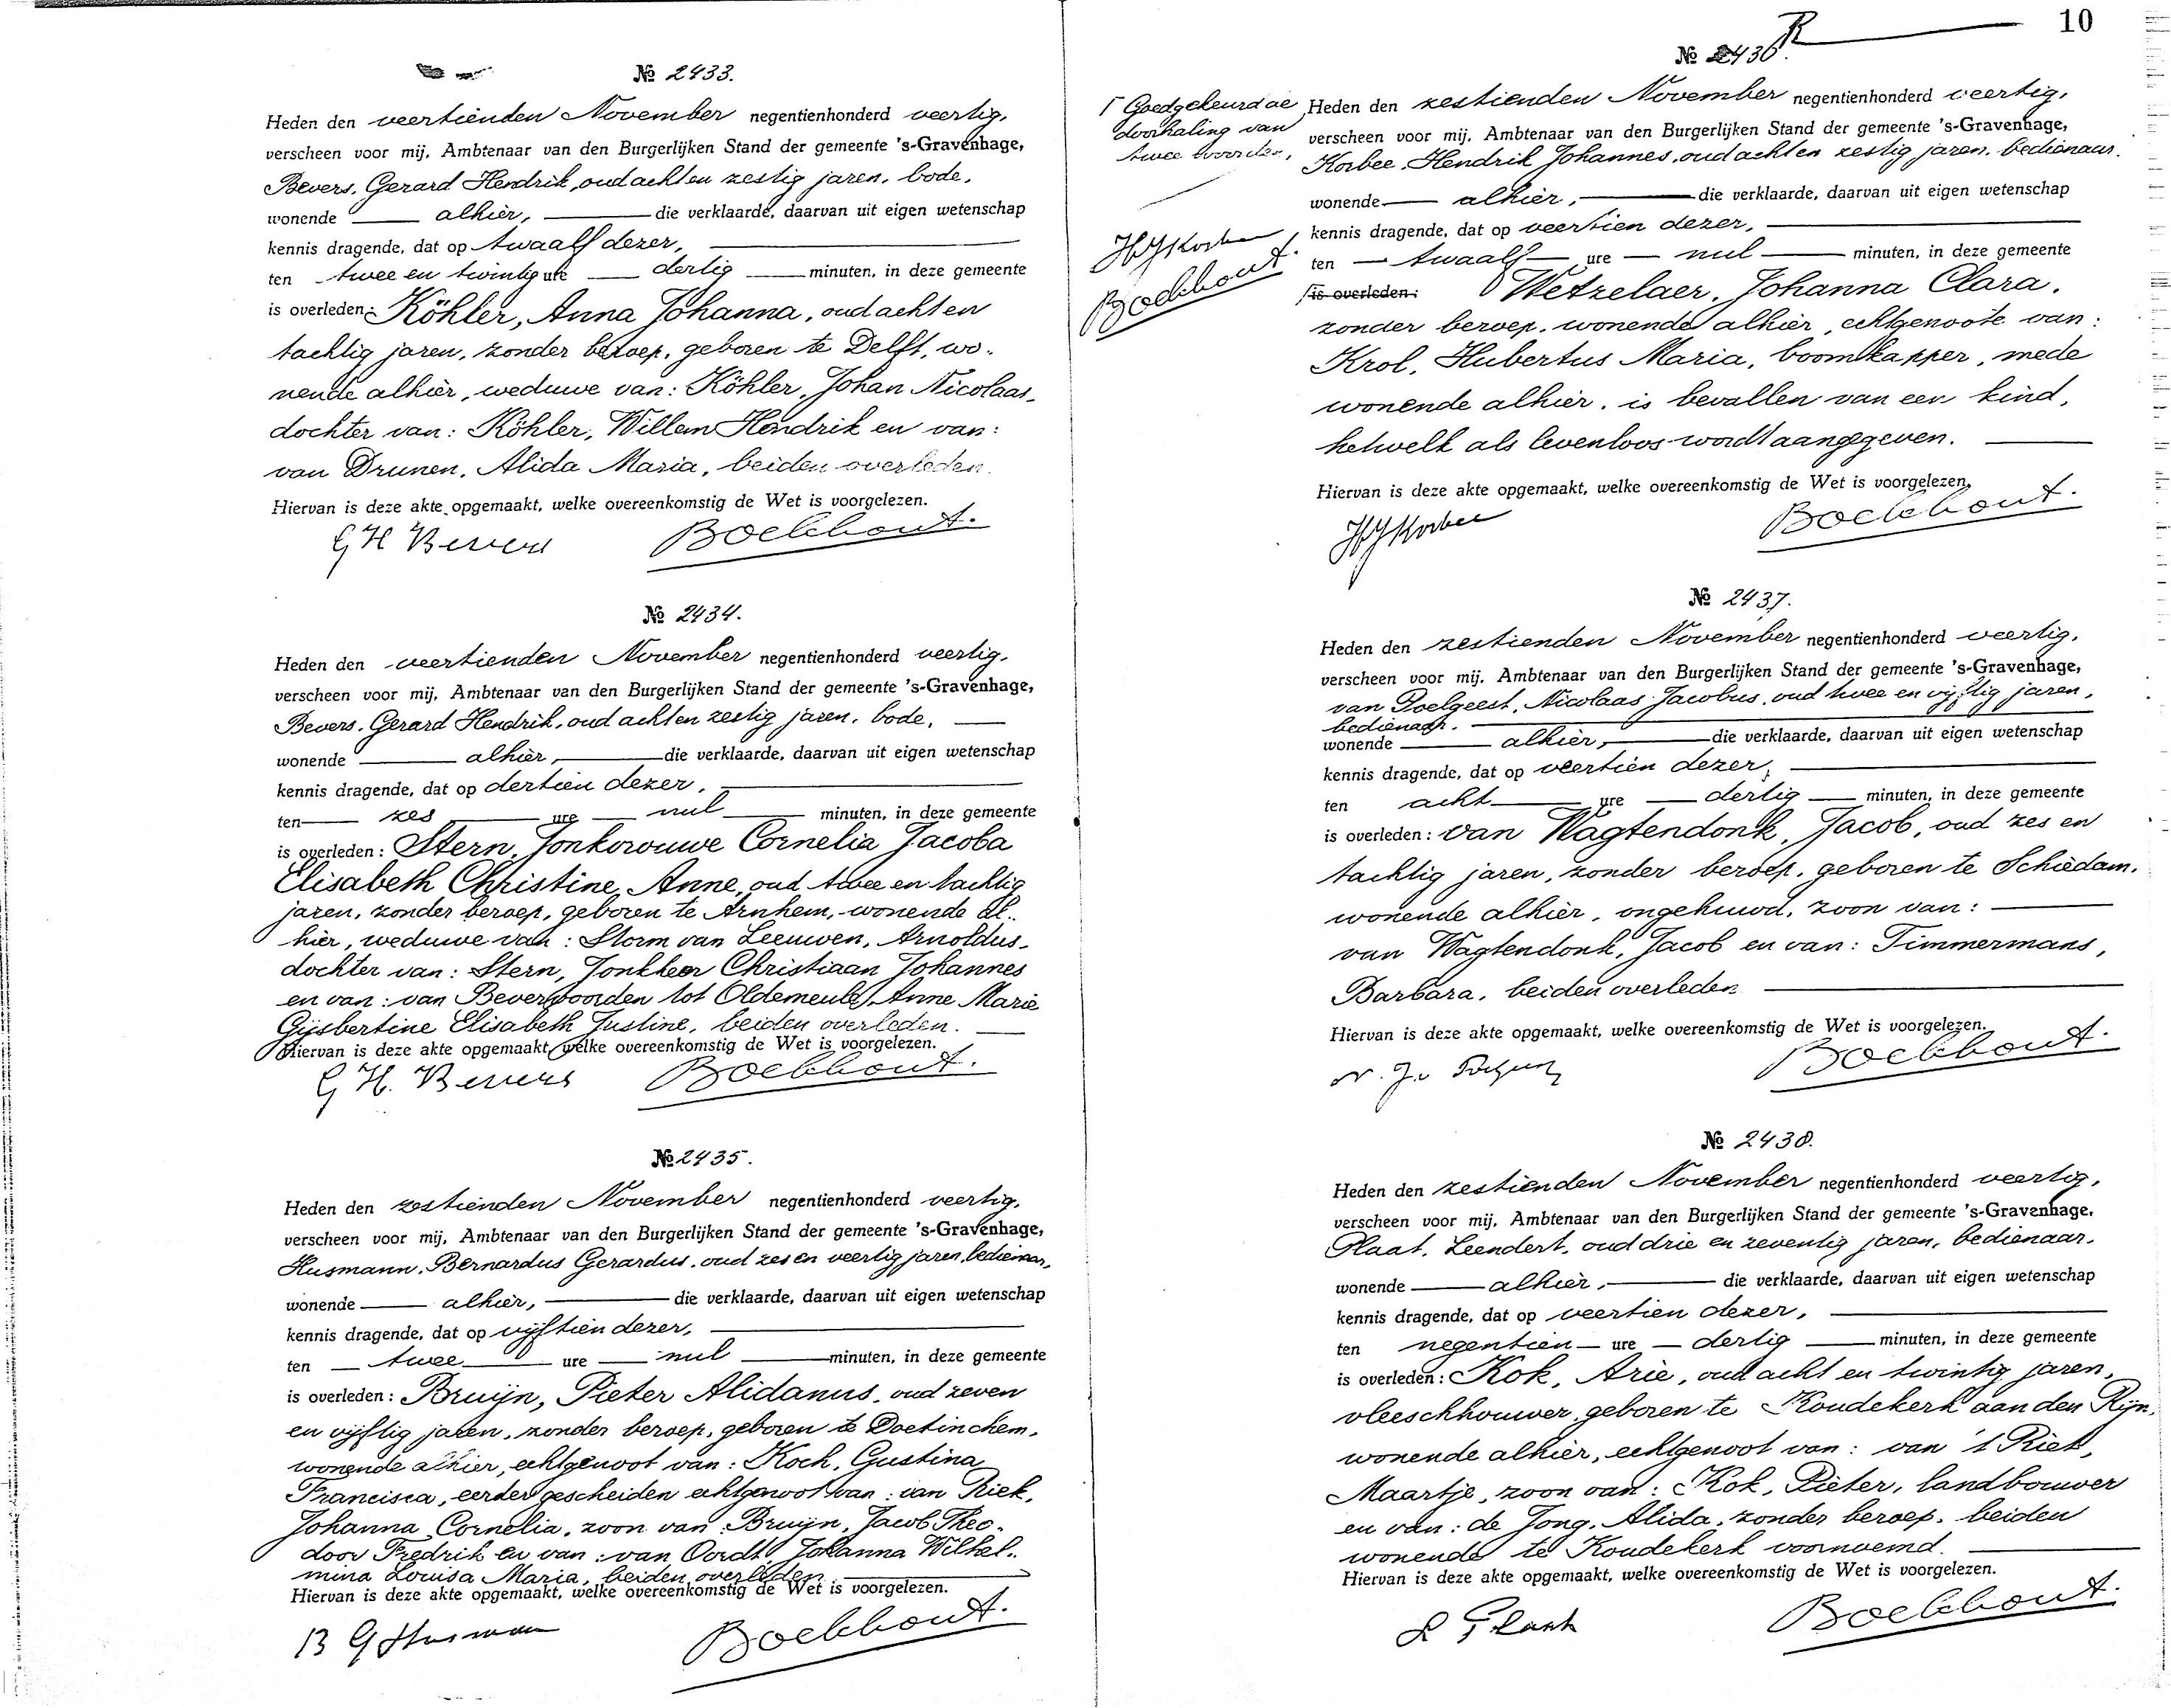 № 2433.
Heden den veertienden November negentienhonderd veertig,
verscheen voor mij, Ambtenaar van den Burgerlijken Stand der gemeente 's-Gravenhage,
Bevers, Gerard Hendrik, oud acht en zestig jaren, bode,
wonende alhier, die verklaarde, daarvan uit eigen wetenschap
kennis dragende, dat op twaalf dezer,
ten twee en twintig ure dertig minuten, in deze gemeente
is overleden: Köhler, Anna Johanna, oud acht en
tachtig jaren, zonder beroep, geboren te Delft, wo-
nende alhier, weduwe van: Köhler, Johan Nicolaas,
dochter van: Köhler, Willem Hendrik en van:
van Drunen, Alida Maria, beiden overleden.
Hiervan is deze akte opgemaakt, welke overeenkomstig de Wet is voorgelezen.
G H Bevers Boekhout.
№ 2434.
Heden den veertienden November negentienhonderd veertig,
verscheen voor mij, Ambtenaar van den Burgerlijken Stand der gemeente 's-Gravenhage,
Bevers, Gerard Hendrik, oud acht en zestig jaren, bode,
wonende alhier, die verklaarde, daarvan uit eigen wetenschap
kennis dragende, dat op dertien dezer,
ten zes ure nul minuten, in deze gemeente
is overleden: Stern, Jonkvrouwe Cornelia Jacoba
Elisabeth Christine Anne, oud twee en tachtig
jaren, zonder beroep, geboren te Arnhem, wonende al-
hier, weduwe van: Storm van Leeuwen, Arnoldus,
dochter van: Stern, Jonkheer Christiaan Johannes
en van: van Bevervoorden tot Oldemeule, Anne Marie
Gijsbertine Elisabeth Justine, beiden overleden.
Hiervan is deze akte opgemaakt, welke overeenkomstig de Wet is voorgelezen.
G H. Bevers Boekhout.
№ 2435.
Heden den zestienden November negentienhonderd veertig,
verscheen voor mij, Ambtenaar van den Burgerlijken Stand der gemeente 's-Gravenhage,
Husmann, Bernardus Gerardus, oud zes en veertig jaren, bedienaar,
wonende alhier, die verklaarde, daarvan uit eigen wetenschap
kennis dragende, dat op vijftien dezer,
ten twee ure nul minuten, in deze gemeente
is overleden: Bruijn, Pieter Alidanus, oud zeven
en vijftig jaren, zonder beroep, geboren te Doetinchem,
wonende alhier, echtgenoot van: Koch, Gustina
Francisca, eerder gescheiden echtgenoot van: van Riek,
Johanna Cornelia, zoon van: Bruijn, Jacob Theo-
door Fredrik en van: van Oordt, Johanna Wilhel-
mina Louisa Maria, beiden overleden.
Hiervan is deze akte opgemaakt, welke overeenkomstig de Wet is voorgelezen.
B G Husman Boekhout.
10
№ 2436. R
Goedgekeurd de
doorhaling van
twee woorden,
HJKorbee
Boekhout.
Heden den zestienden November negentienhonderd veertig,
verscheen voor mij, Ambtenaar van den Burgerlijken Stand der gemeente 's-Gravenhage,
Korbee, Hendrik Johannes, oud acht en zestig jaren, bedienaar,
wonende alhier, die verklaarde, daarvan uit eigen wetenschap
kennis dragende, dat op veertien dezer,
ten twaalf ure nul minuten, in deze gemeente
is overleden: Wetzelaer, Johanna Clara,
zonder beroep, wonende alhier, echtgenoote van:
Krol, Hubertus Maria, boomkapper, mede
wonende alhier, is bevallen van een kind,
hetwelk als levenloos wordt aangegeven.
Hiervan is deze akte opgemaakt, welke overeenkomstig de Wet is voorgelezen.
HJKorbee Boekhout.
№ 2437.
Heden den zestienden November negentienhonderd veertig,
verscheen voor mij, Ambtenaar van den Burgerlijken Stand der gemeente 's-Gravenhage,
van Poelgeest, Nicolaas Jacobus, oud twee en vijftig jaren,
bedienaar.
wonende alhier, die verklaarde, daarvan uit eigen wetenschap
kennis dragende, dat op veertien dezer,
ten acht ure dertig minuten, in deze gemeente
is overleden: van Wagtendonk, Jacob, oud zes en
tachtig jaren, zonder beroep, geboren te Schiedam,
wonende alhier, ongehuwd, zoon van:
van Wagtendonk, Jacob en van: Timmermans,
Barbara, beiden overleden
Hiervan is deze akte opgemaakt, welke overeenkomstig de Wet is voorgelezen.
Boekhout.
№ 2438.
Heden den zestienden November negentienhonderd veertig,
verscheen voor mij, Ambtenaar van den Burgerlijken Stand der gemeente 's-Gravenhage,
Plaat, Leendert, oud drie en zeventig jaren, bedienaar,
wonende alhier, die verklaarde, daarvan uit eigen wetenschap
kennis dragende, dat op veertien dezer,
ten negentien ure dertig minuten, in deze gemeente
is overleden: Kok, Arie, oud acht en twintig jaren,
vleeschhouwer, geboren te Koudekerk aan den Rijn,
wonende alhier, echtgenoot van: van 't Riet,
Maartje, zoon van: Kok, Pieter, landbouwer
en van: de Jong, Alida, zonder beroep, beiden
wonende te Koudekerk voornoemd.
Hiervan is deze akte opgemaakt, welke overeenkomstig de Wet is voorgelezen.
L Plaat Boekhout.